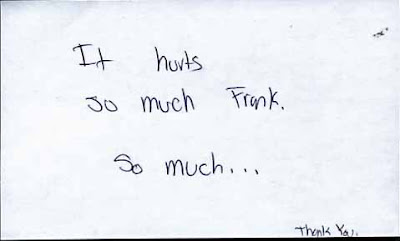 It hurts
so much Frank.
So much...
Thank You.